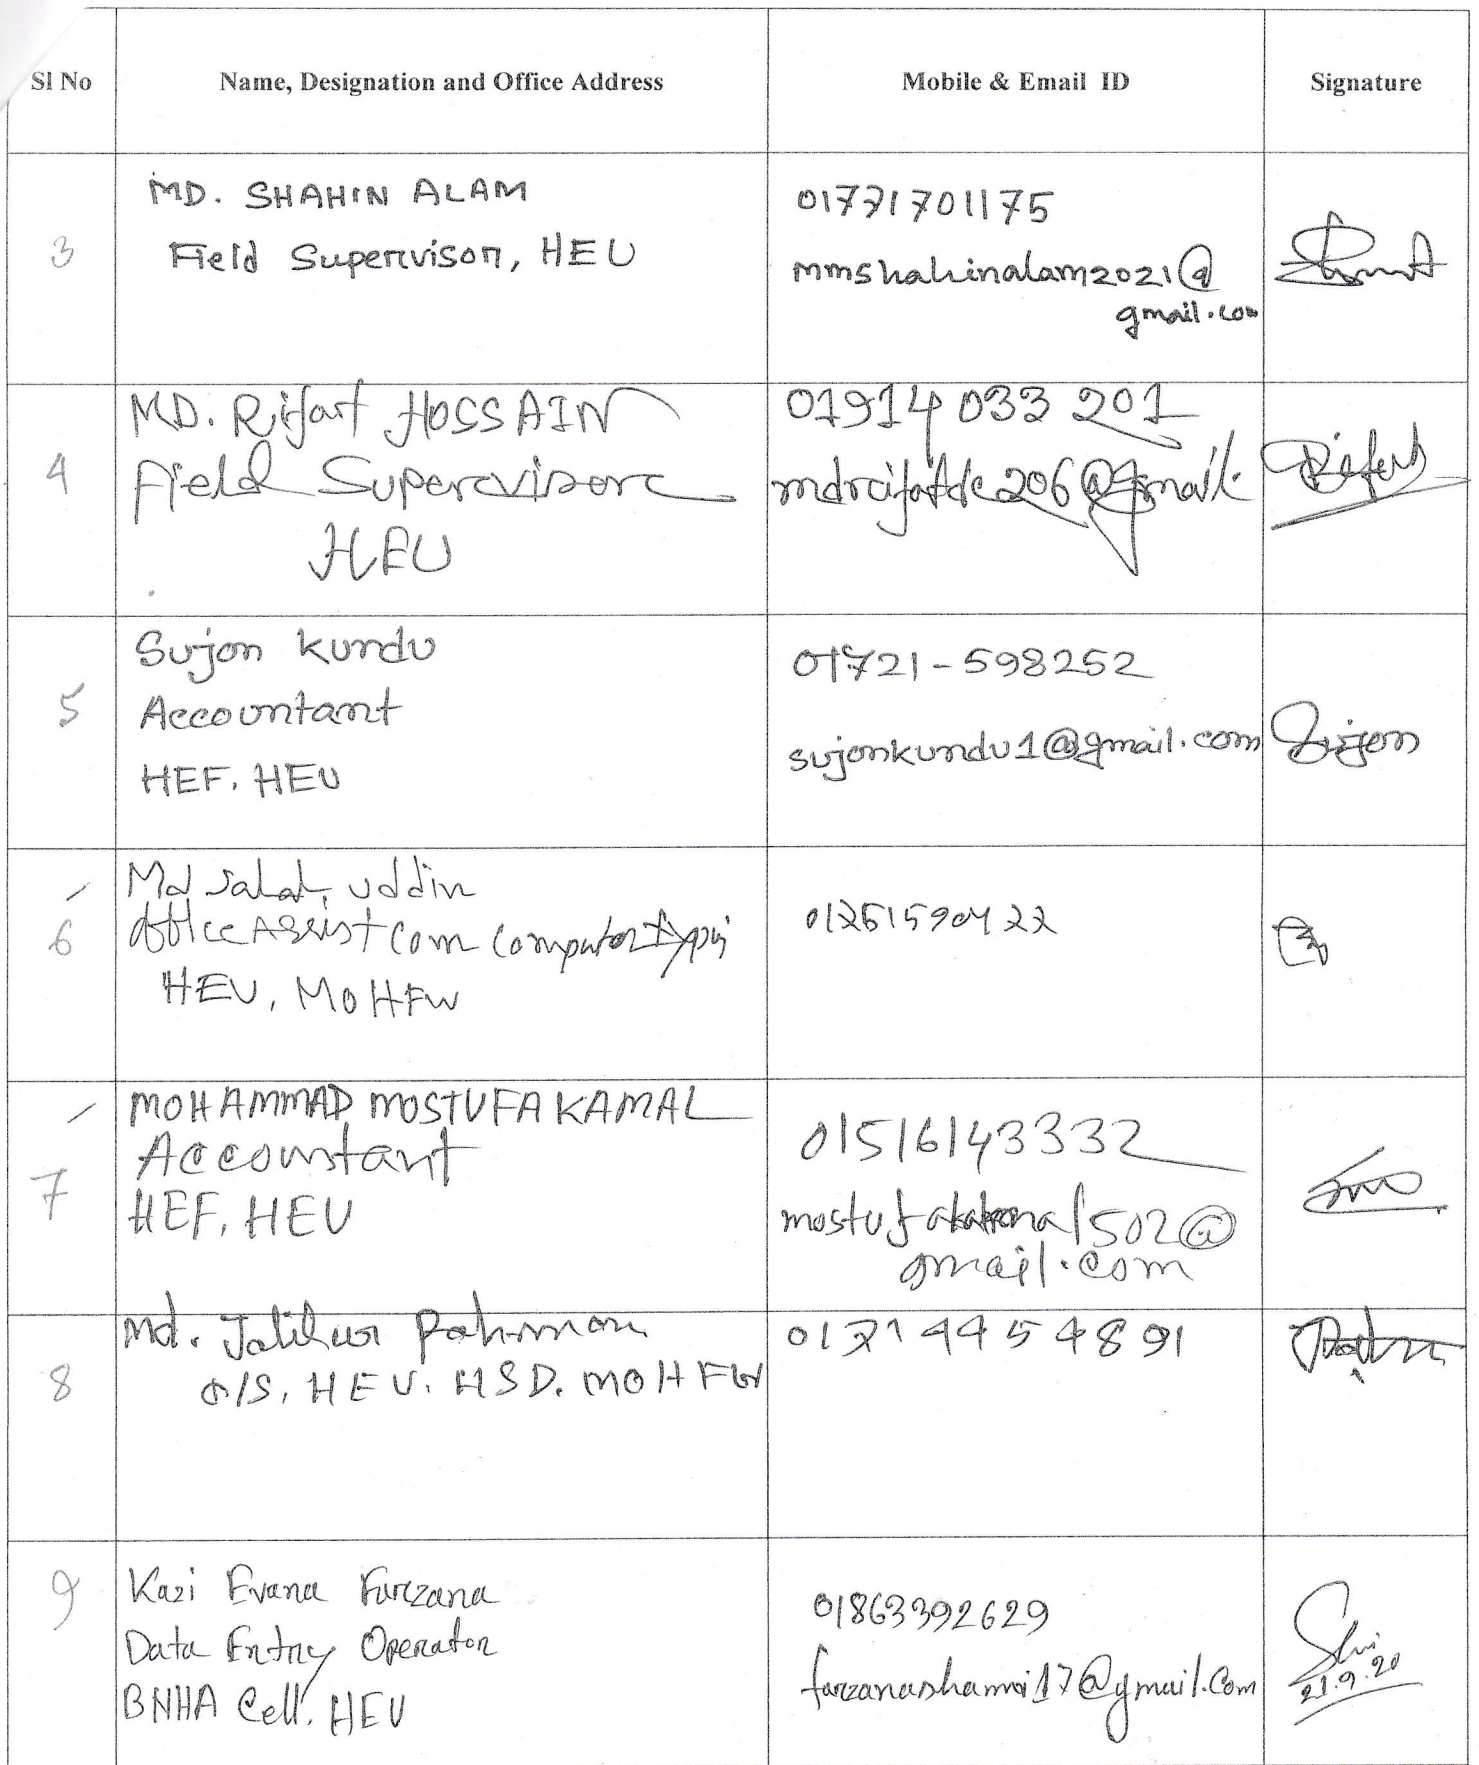 Sl No
Name, Designation and Office Address
Mobile & Email ID
Signature
3
MD. SHAHIN ALAM
Field Supervisor, HEU
01771701175
mmshahinalam2021@
gmail.com
4
MD. Rifat HOSSAIN
Field Supervisor
HEU
01914 033 201
5
Sujon Kundu
Accountant
HEF, HEU
01721-598252
sujonkundu1@gmail.com
Sujon
6
Md Salah uddin
Office Assist com computer
HEU, MOHFW
7
MOHAMMAD MOSTUFA KAMAL
Accountant
HEF, HEU
01516143332
mostufakamal502@
gmail.com
8
Md. Rahman
O/S, HEU. HSD. MOHFW
9
Kazi Evana Farzana
Data Entry Operator
BNHA Cell, HEU
01863392629
21.9.20